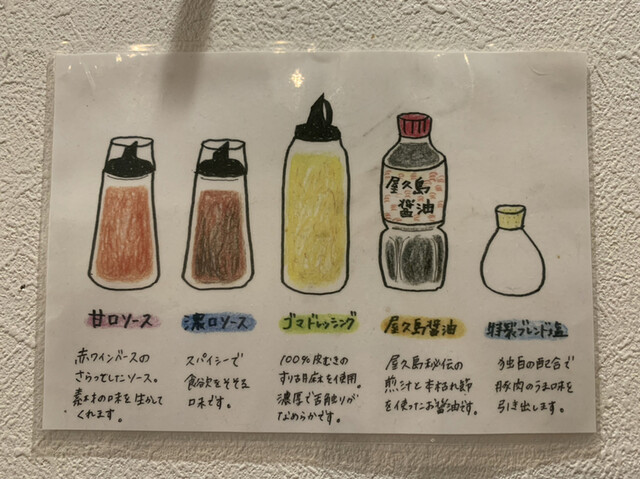 屋久島
醤油
甘口ソース
赤ワインベースの
さらっとしたソース。
素材の味を生かして
くれます。
濃口ソース
スパイシーで
食欲をそそる
味です。
ゴマドレッシング
100%皮むきの
すり胡麻を使用。
濃厚で舌触りが
なめらかです。
屋久島醤油
屋久島秘伝の
煎汁と本枯れ節
を使ったお醤油です。
特製ブレンド塩
独自の配合で
豚肉のうま味を
引き出します。